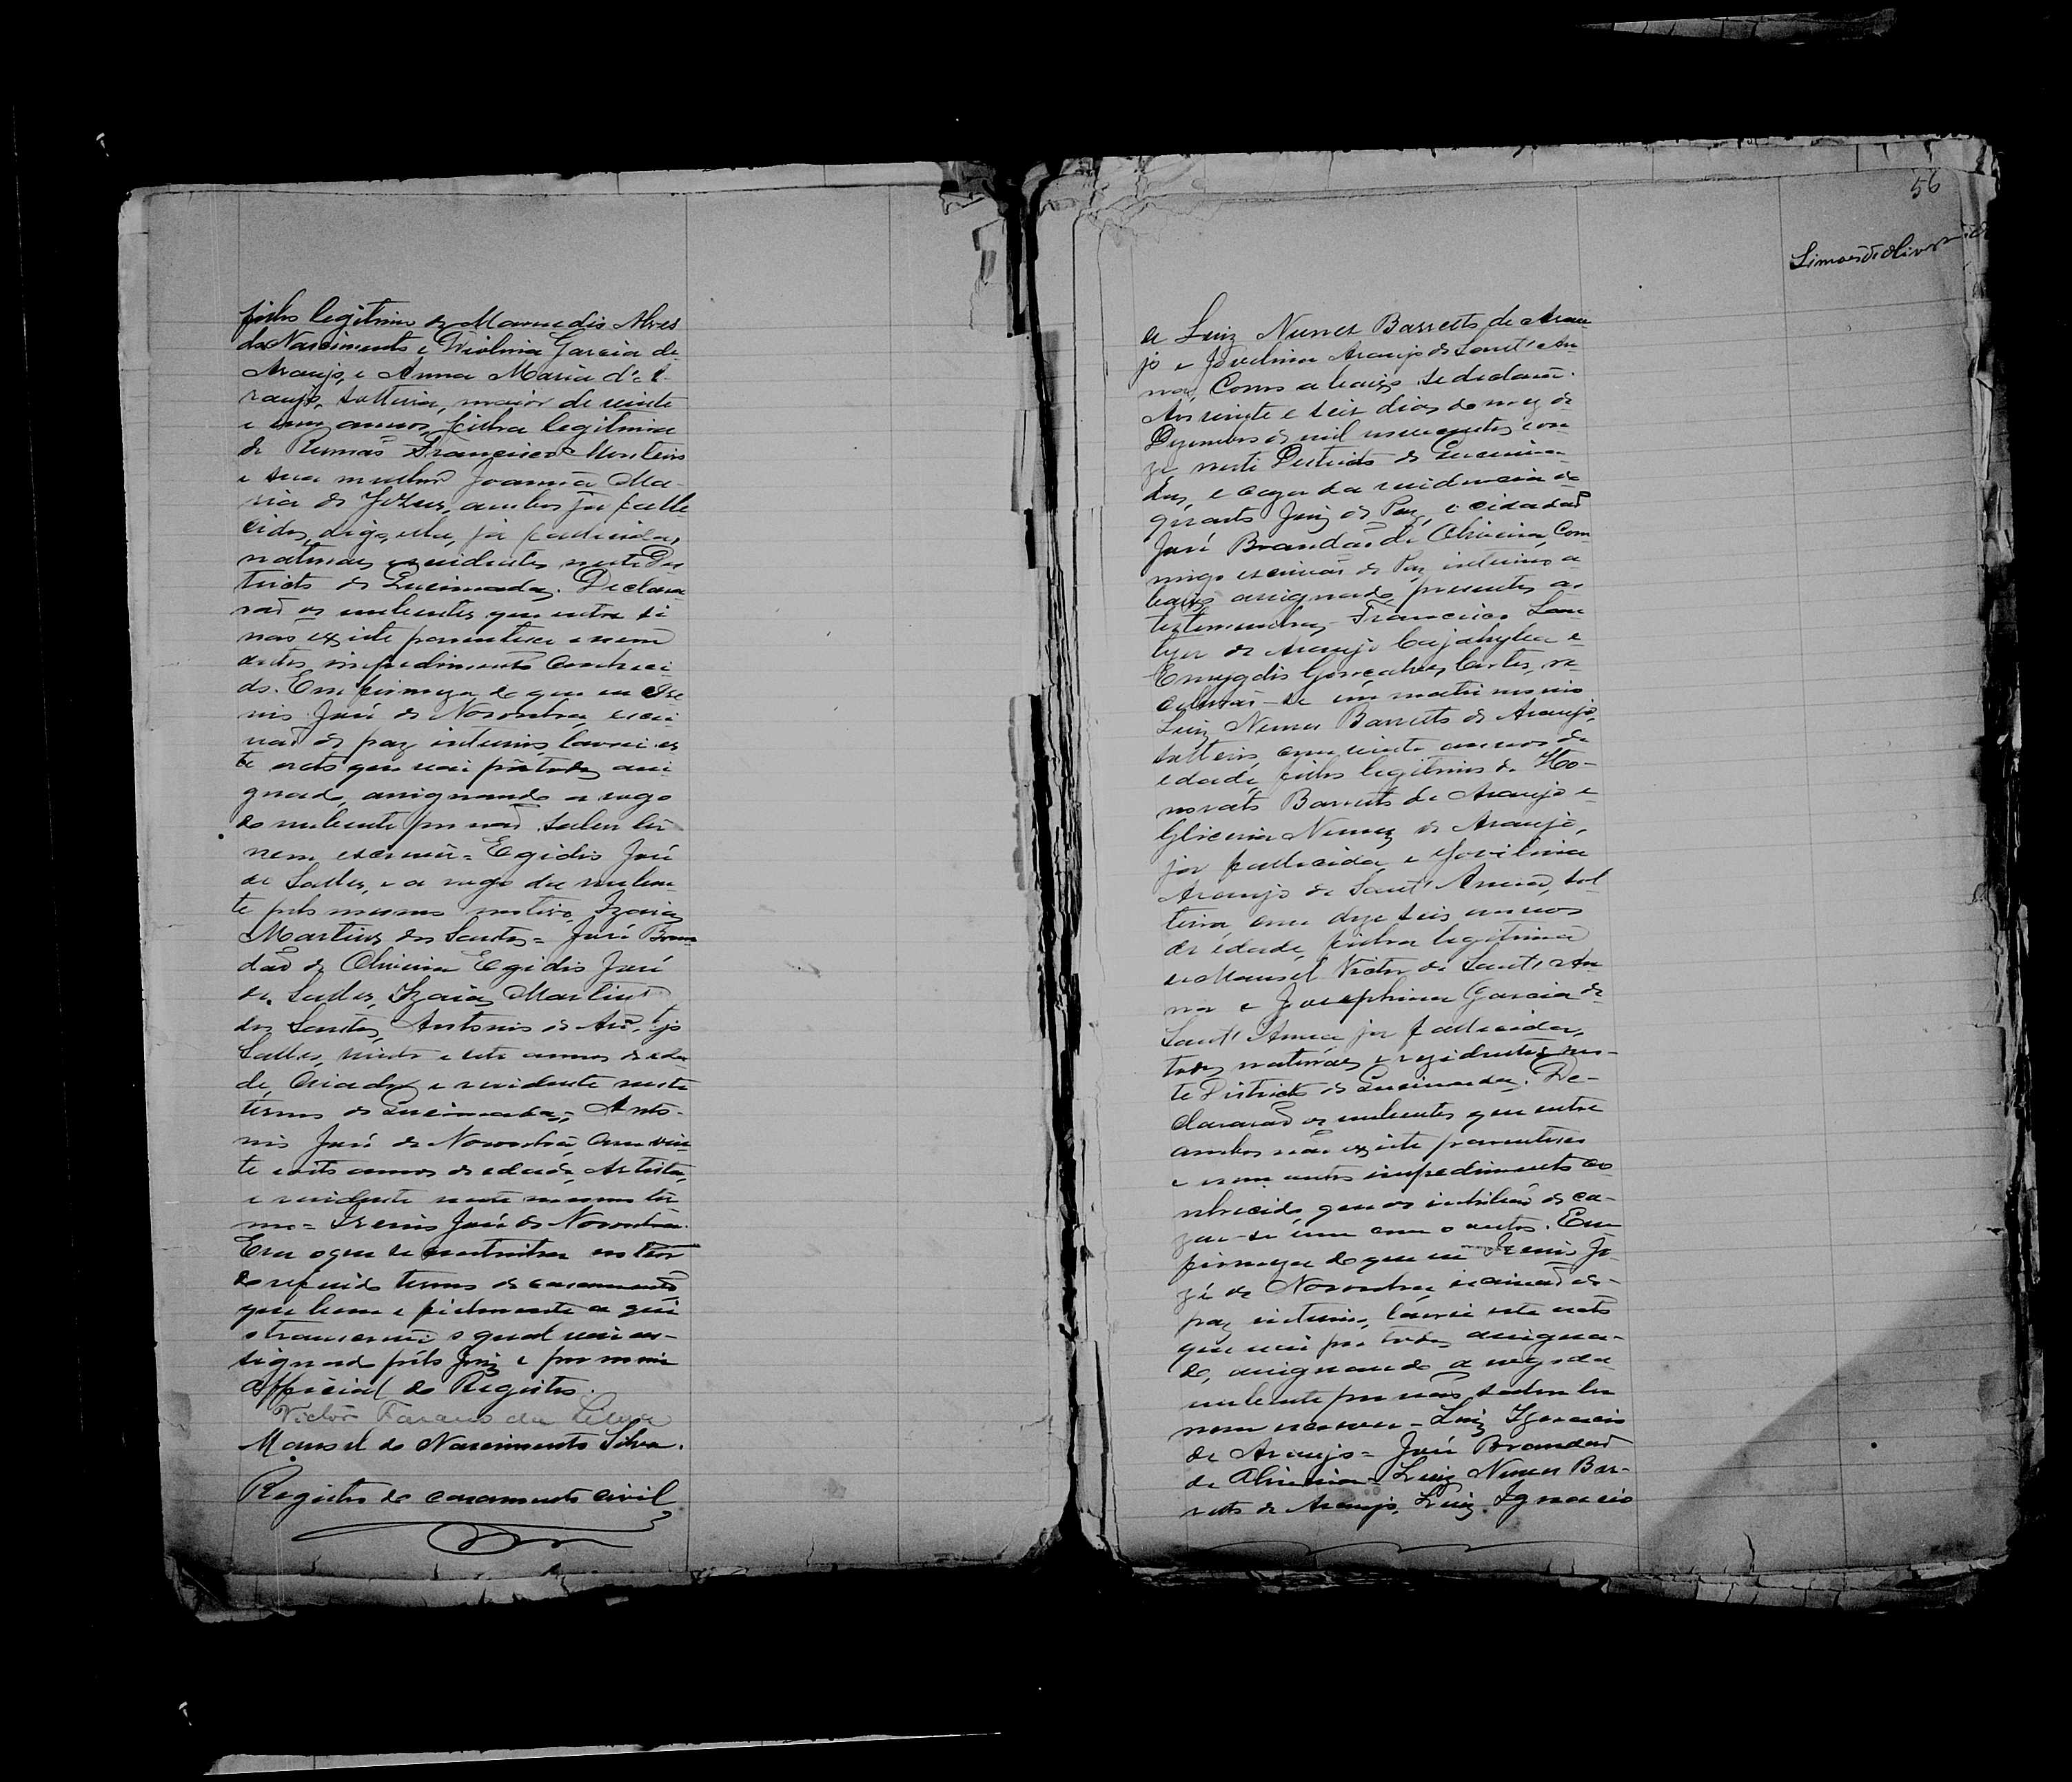 filho legitimo de Mamedio Alves
do Nascimento e Violina Garcia de
Araujo, e Anna Maria d'A-
raujo, solteira, maior de vinte
e um annos, filha legitima
de Francisco Monteiro
e sua mulher Joanna Ma-
ria de Jezus, ambos ja falle
cidos, digo, ella, ja fallecida,
naturaes e residentes neste Des
tricto de Queimadas. Declara
raõ os nubentes que entre si
naõ existe parentesco e nem
outro impedimento conheci
do. Em firmeza do que eu Ire
nio José de Noronha escri
vaõ de paz interino, lavrei es
te acto que vai por todos assi
gnado, assignando a rogo
do nubente por naõ saber ler
nem escrever = Egidio José
de Salles, e a rogo da nuben
te pelo mesmo motivo Izaias
Martins dos Santos = José Bran
daõ de Oliveira Egidio José
de Salles, Izaias Martins
dos Santos, Antonio de Araujo
Salles, vinte e sete annos de eda
de, Criador e residente neste
termo de Queimadas, = Anto-
nio José de Noronha com vin
te e oito annos de edade, Artista,
e residente neste mesmo ter
mo = Irenio José de Noronha.
Era o que se continha em teor
do referido termo de casamento
que bem e fielmente a qui
transcrevi o qual vai as-
signado pelo Juiz e por mim
official do Registro.
Victor
Manoel do Nascimento Silva.
Registro de casamento civil
56
Simaõ de Oliveira
de Luiz Nunes Barretto de Arau
jo e Jovelina Araujo de Sant'An
na, Como abaixo se declara.
Aos vinte e seis dias do mez de
Dezembro de mil novecentos e on
ze neste Destricto de Queima
das, e caza da residencia do
Juiz de Paz, o cidadaõ
José Brandaõ de Oliveira, Com
migo escrivaõ de Paz interino a
baixo assignado, presentes as
testemunhas Francisco Lan
de Araujo Cajahyba e
Emygdio Gonçalves Cortes, re
ceberaõ-se em matrimonio
Luiz Nunes Barretto de Araujo,
solteiro, com vinte annos de
edade, filho legitimo de Ho-
norato Barretto de Araujo e
Gliceria Nunes de Araujo,
ja fallecida e Jovilina
Araujo de Sant'Anna, sol
teira, com deze seis annos
de edade, filha legitima
de Manoel Victor de Sant'An
na e Josephina Garcia de
Sant'Anna ja fallecida,
todos naturaes e rezidentes nes-
te Districto de Queimadas. De-
clararaõ os nubentes que entre
ambos naõ existe parentesco
e nem outro impedimento co
nhecido que os de ca-
zar-se um com o outro. Em
firmeza do que eu Irenio Jo
zé de Noronha escrivaõ de
paz interino, lavrei este acto
que vai por todos assigna-
do, assignando a rogo da
nubente por naõ saber ler
nem escrever - Luiz Ignacio
de Araujo = José Brandaõ
de Oliveira - Luiz Nunes Bar-
retto de Araujo, Luiz Ignacio